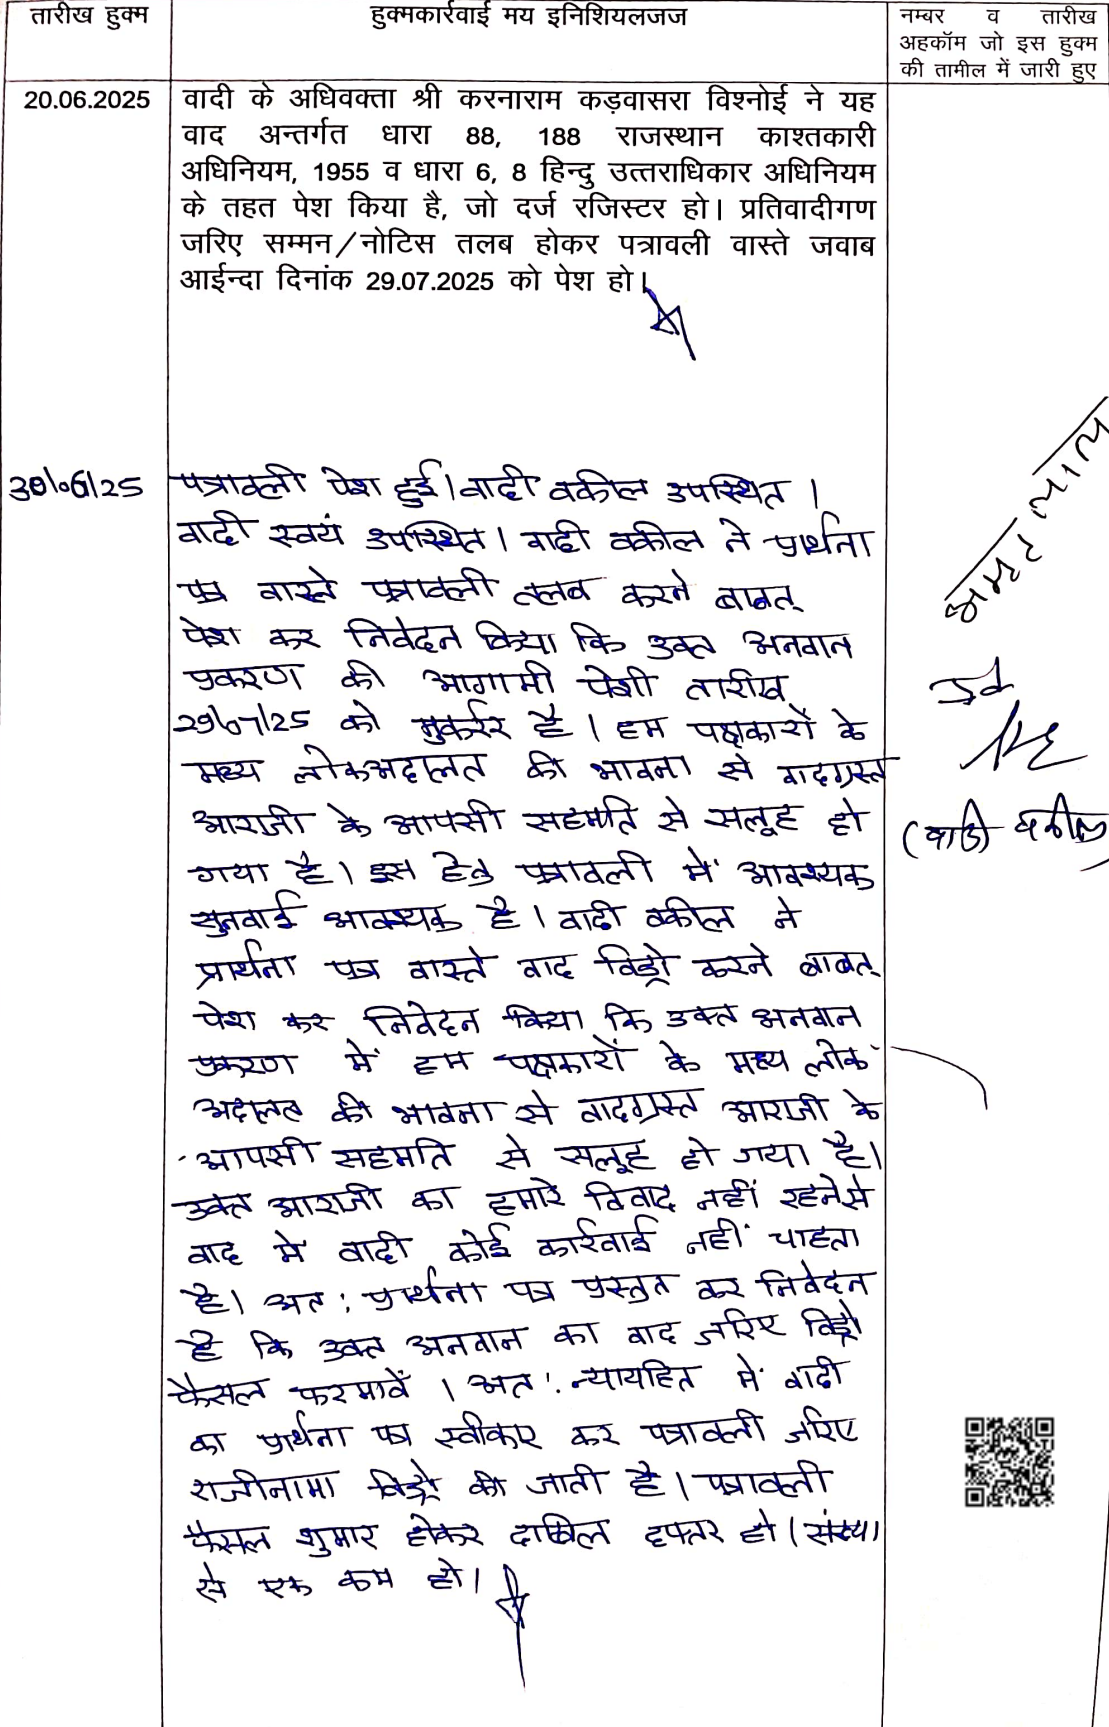 तारीख हुक्म
हुक्मकार्रवाई मय इनिशियलजज
नम्बर व तारीख
अहकॉम जो इस हुक्म
की तामील में जारी हुए
20.06.2025
वादी के अधिवक्ता श्री करनाराम कड़वासरा विश्नोई ने यह
वाद अन्तर्गत धारा 88, 188 राजस्थान काश्तकारी
अधिनियम, 1955 व धारा 6, 8 हिन्दु उत्तराधिकार अधिनियम
के तहत पेश किया है, जो दर्ज रजिस्टर हो। प्रतिवादीगण
जरिए सम्मन/नोटिस तलब होकर पत्रावली वास्ते जवाब
आईन्दा दिनांक 29.07.2025 को पेश हो।
30/06/25
पत्रावली पेश हुई। वादी वकील उपस्थित।
वादी स्वयं उपस्थित। वादी वकील ने प्रार्थना
पत्र वास्ते पत्रावली तलब करने बाबत्
पेश कर निवेदन किया कि उक्त अनवान
प्रकरण की आगामी पेशी तारीख
29/07/25 को मुकर्रर है। हम पक्षकारों के
मध्य लोकअदालत की भावना से वादग्रस्त
आराजी के आपसी सहमति से सलूह हो
गया है। इस हेतु पत्रावली में आवश्यक
सुनवाई आवश्यक है। वादी वकील ने
प्रार्थना पत्र वास्ते वाद विड्रो करने बाबत्
पेश कर निवेदन किया कि उक्त अनवान
प्रकरण में हम पक्षकारों के मध्य लोक
अदालत की भावना से वादग्रस्त आराजी के
आपसी सहमति से सलूह हो गया है।
उक्त आराजी का हमारे विवाद नहीं रहने से
वाद में वादी कोई कार्रवाई नहीं चाहता
है। अत: प्रार्थना पत्र प्रस्तुत कर निवेदन
है कि उक्त अनवान का वाद जरिए विड्रो
फैसल फरमावें। अत: न्यायहित में वादी
का प्रार्थना पत्र स्वीकार कर पत्रावली जरिए
राजीनामा विड्रो की जाती है। पत्रावली
फैसल शुमार होकर दाखिल दफ्तर हो। संख्या
से एक कम हो।
(वादी वकील)